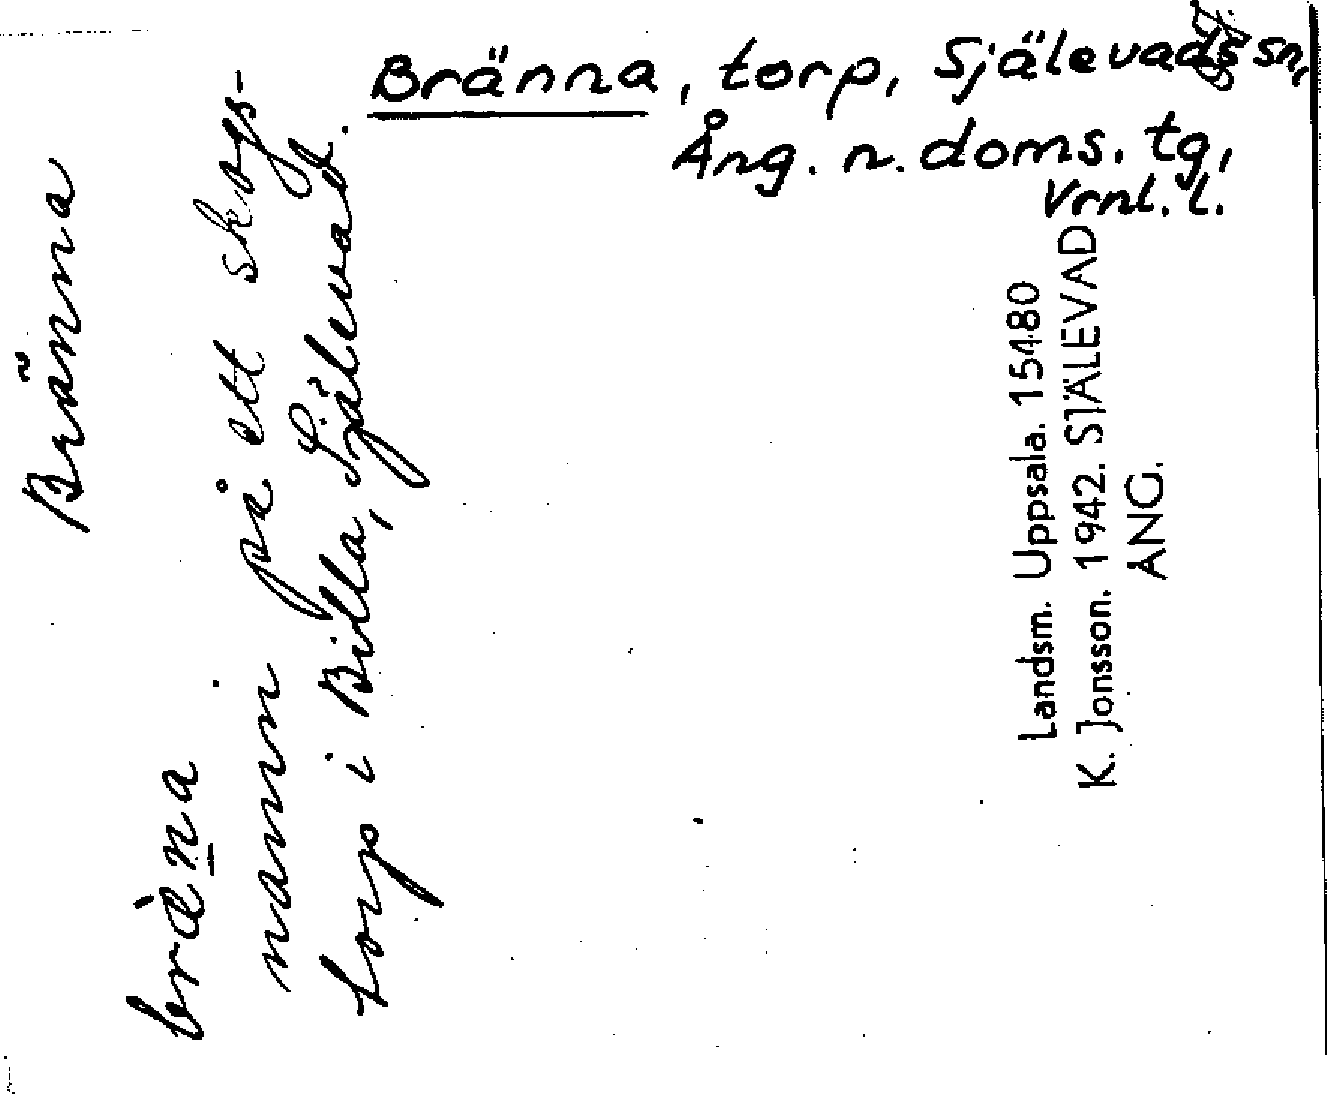 Bränna, torp, Själevads sn,
Ång. n. doms. tg,
Vrnl. l.
Bränna
bræ̀na
namn på ett skogs-
torp i Billa, Själevad.
Landsm. Uppsala. 15480
K. Jonsson. 1942. SJÄLEVAD
ÅNG.